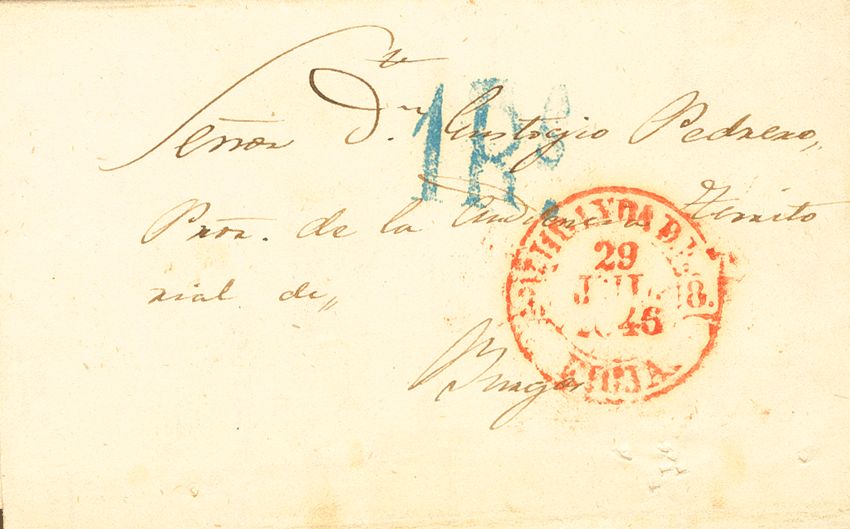 Señor Dn. Eustogio Pedrero,,
1Rs.
Pror. de la Audiencia Territo
rial de,,
Burgos
29
JUL.
1846
8.
RIOJA.